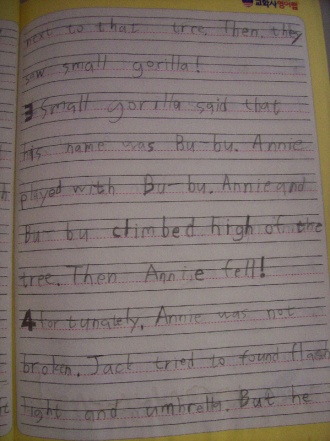 교학사
next to that tree. Then, they
saw small gorilla!
3 Small gorilla said that
his name was Bu-bu. Annie
played with Bu-bu. Annie and
Bu-bu climbed high of the
tree. Then Annie fell!
4 for tunately, Annie was not
broken. Jack tried to found flash
light and umbrella. But he